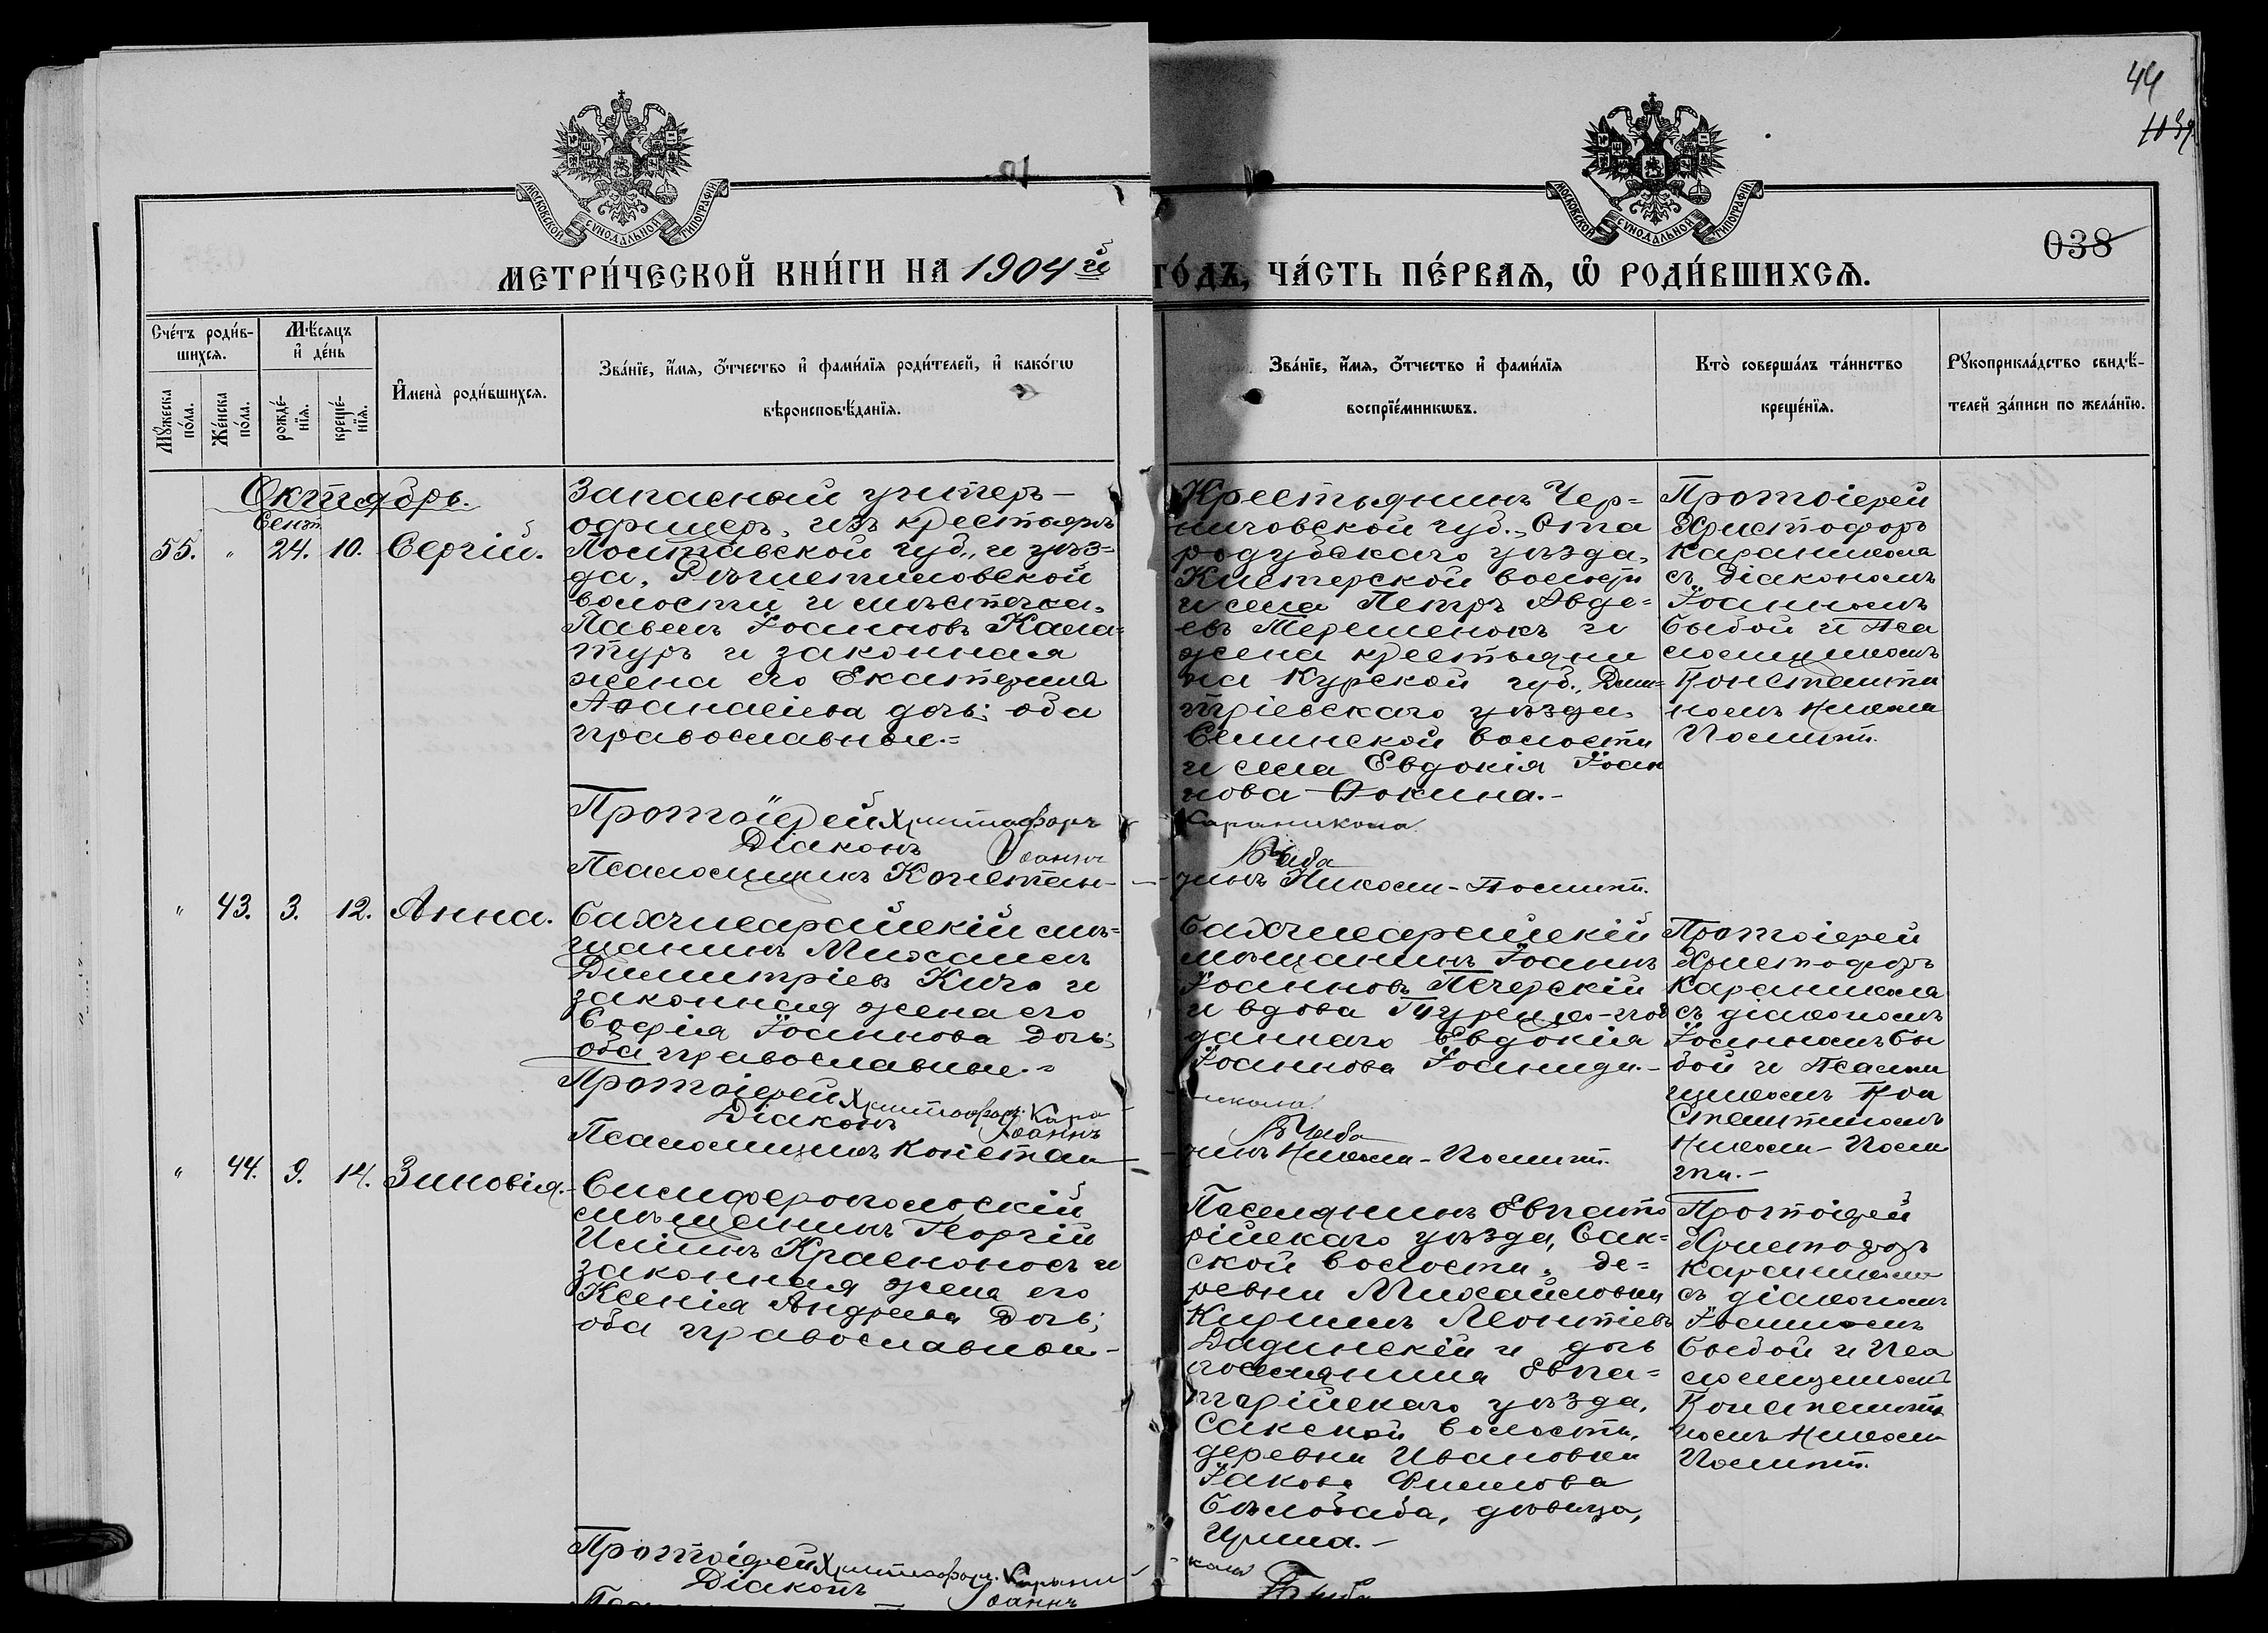 44
1039
038
МОСКОВСКОЙ СѴНОДАЛЬНОЙ ТИПОГРАФІИ
МОСКОВСКОЙ СѴНОДАЛЬНОЙ ТИПОГРАФІИ
МЕТРИ́ЧЕСКОЙ КНИ́ГИ НА 1904й ГО́ДЪ, ЧА́СТЬ ПЕ́РВАѦ, Ѡ҆ РОДИ́ВШИХСѦ.
Сче́тъ роди́в-
шихсѧ.
Мꙋ́жеска
по́ла.
Же́нска
по́ла.
Мѣ́сѧцъ
и҆ де́нь
рожде́-
нїѧ.
креще́-
нїѧ.
И҆мена̀ роди́вшихсѧ.
Зва́нїе, и҆́мѧ, ѻ҆́тчество и҆ фами́лїѧ роди́телей, и҆ како́гѡ
вѣроисповѣ́данїѧ.
Зва́нїе, и҆́мѧ, ѻ҆́тчество и҆ фами́лїѧ
воспрїе́мникѡвъ.
Кто̀ соверша́лъ та́инство
креще́нїѧ.
Рꙋкоприкла́дство свидѣ́-
телей за́писи по жела́нїю.
Октябрь.
Сент.
55. " 24. 10. Сергій.
Запасный унтеръ-
офицеръ, изъ крестьянъ
Полтавской губ., и уѣз-
да, Рѣшетиловской
волости и мѣстечка,
Павелъ Іоанновъ Кала-
туръ и законная
жена его Екатерина
Аѳанасіева дочь; оба
православные.=
Крестьянинъ Чер=
ниговской губ., Ста
родубскаго уѣзда,
Кистерской волости
и села Петръ Авде=
евъ Терешенокъ и
жена крестьяни
на Курской губ., Дми=
тріевскаго уѣзда,
Селинской волости
и села Евдокія Іоан
нова Ѳокина.-
Протоіерей
Христофоръ
Караникола
съ діакономъ
Іоанномъ
Быбой и Пса
ломщикомъ
Константи
номъ Никола
Посипт.
Протоіерей Христофоръ Караникола
Діаконъ Іоаннъ Быба
Псаломщикъ Констан-тинъ Никола-Посипт.
" 43. 3. 12. Анна.
Бахчисарайскій мѣ=
щанинъ Михаилъ
Димитріевъ Кичо и
законная жена его
Софія Іоаннова дочь;
оба православные.=
Бахчисарайскій
мѣщанинъ Іоаннъ
Іоанновъ Печерскій
и вдова Турецко-под
даннаго Евдокія
Іоаннова Іоаниди.-
Протоіерей
Христофоръ
Караникола
съ діакономъ
Іоанномъ Бы
бой и Псалом
щикомъ Кон
стантиномъ
Никола-Поси
пт.-
Протоіерей Христофоръ Кара-никола
Діаконъ Іоаннъ Быба
Псаломщикъ Констан-тинъ Никола-Посипт.
" 44. 9. 14. Зиновія.-
Симферопольскій
мѣщанинъ Георгій
Ильинъ Красноносъ и
законная жена его
Ксенія Андреева дочь;
оба православные-
Поселянинъ Евпато
рійскаго уѣзда, Сак=
ской волости, де=
ревни Михайловки
Кириллъ Леонтіевъ
Дадинскій и дочь
поселянина Евпа=
торійскаго уѣзда,
Сакской волости,
деревни Ивановки
Іакова Филипова
Бѣлобаба, дѣвица,
Ирина.-
Протоіерей
Христофоръ
Караникола
съ діакономъ
Іоанномъ
Быбой и Пса
ломщикомъ
Константи
номъ Никола
Посипт.
Протоіерей Христофоръ Карани-кола
Діаконъ Іоаннъ Быба